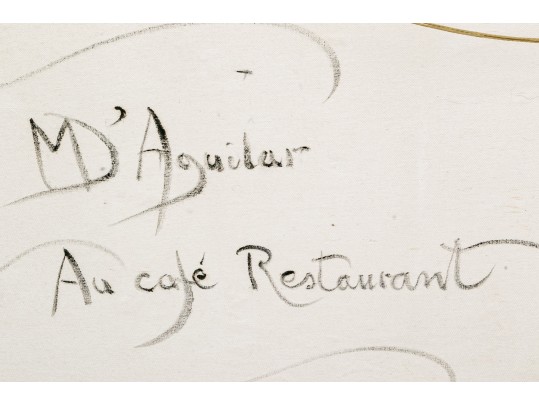 M D'Aguilar
Au café Restaurant